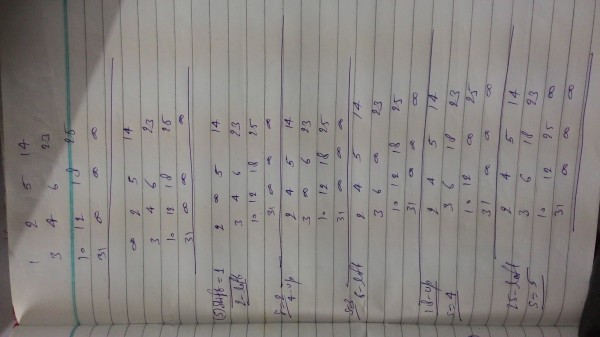 1 2 5 14
3 4 6 23
10 12 18 25
31 ∞ ∞ ∞
∞ 2 5 14
3 4 6 23
10 12 18 25
31 ∞ ∞ ∞
(S)Shift=1 2 ∞ 5 14
2-left 3 4 6 23
10 12 18 25
31 ∞ ∞ ∞
S=2 2 4 5 14
4-up 3 ∞ 6 23
10 12 18 25
31 ∞ ∞ ∞
S=3 2 4 5 14
6-left 3 6 ∞ 23
10 12 18 25
31 ∞ ∞ ∞
18-up 2 4 5 14
S=4 3 6 18 23
10 12 ∞ 25
31 ∞ ∞ ∞
25-left 2 4 5 14
S=5 3 6 18 23
10 12 25 ∞
31 ∞ ∞ ∞